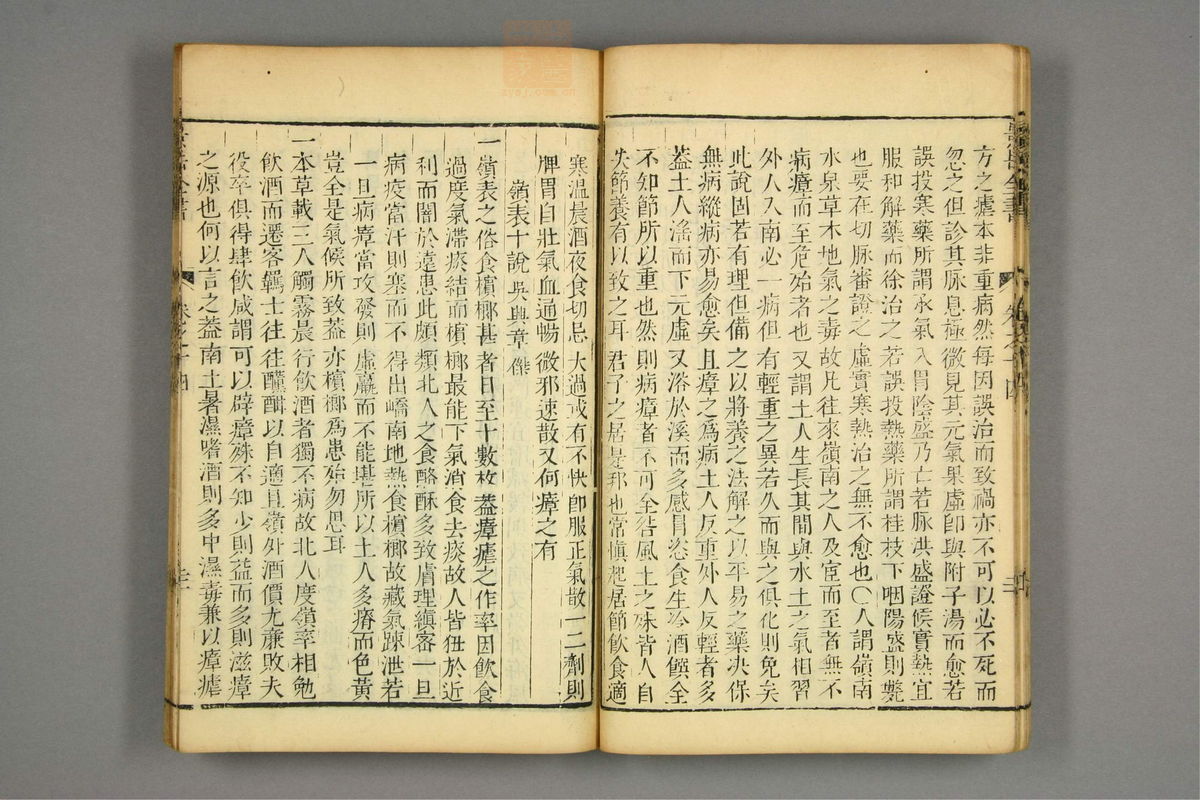 方之瘧本非重病然每因誤治而致禍亦不可以必不死而
忽之但診其脉息極微見其元氣果虛卽與附子湯而愈若
誤投寒藥所謂承氣入胃陰盛乃亡若脉洪盛證候實熱宜
服和解藥而徐治之若誤投熱藥所謂桂枝下咽陽盛則斃
也要在切脉審證之虛實寒熱治之無不愈也〇人謂嶺南
水泉草木地氣之毒故凡往來嶺南之人及宦而至者無不
病瘴而至危殆者也又謂土人生長其間與水土之氣相習
外人入南必一病但有輕重之異若久而與之俱化則免矣
此說固若有理但備之以將養之法解之以平易之藥决保
無病縱病亦易愈矣且瘴之爲病土人反重外人反輕者多
蓋土人淫而下元虛又浴於溪而多感冒恣食生冷酒饌全
不知節所以重也然則病瘴者不可全咎風土之殊皆人自
失節養有以致之耳君子之居是邦也常愼起居節飲食適
寒溫晨酒夜食切忌大過或有不快卽服正氣散一二劑則
脾胃自壯氣血通暢微邪速散又何瘴之有
嶺表十說吳興章傑
一嶺表之俗食檳榔甚者日至十數枚蓋瘴瘧之作率因飲食
過度氣滯痰結而檳榔最能下氣消食去痰故人皆狃於近
利而闇於遠患此頗類北人之食酪酥多致膚理縝密一旦
病疫當汗則塞而不得出嶠南地熱食檳榔故藏氣踈泄若
一旦病瘴當攻發則虛羸而不能堪所以土人多瘠而色黃
豈全是氣候所致蓋亦檳榔爲患殆勿思耳
一本草載三人觸霧晨行飲酒者獨不病故北人度嶺率相勉
飲酒而遷客羈士往往醺酣以自適且嶺外酒價尤亷敗夫
役卒俱得肆飲咸謂可以辟瘴殊不知少則益而多則滋瘴
之源也何以言之蓋南土暑濕嗜酒則多中濕毒兼以瘴瘧
景岳全書
卷之十四
三